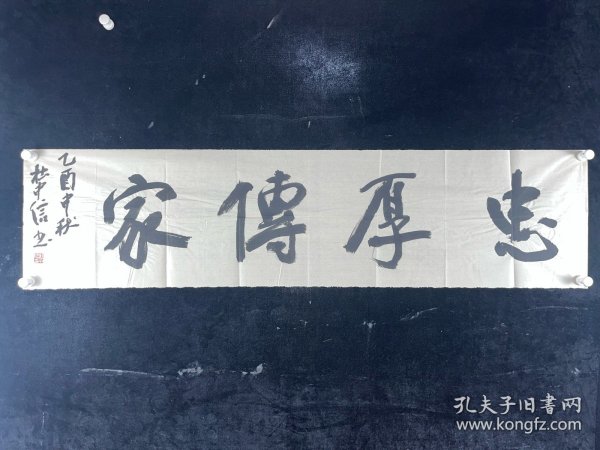 忠厚傳家
乙酉中秋
杜中信书
孔夫子旧書网
www.kongfz.com